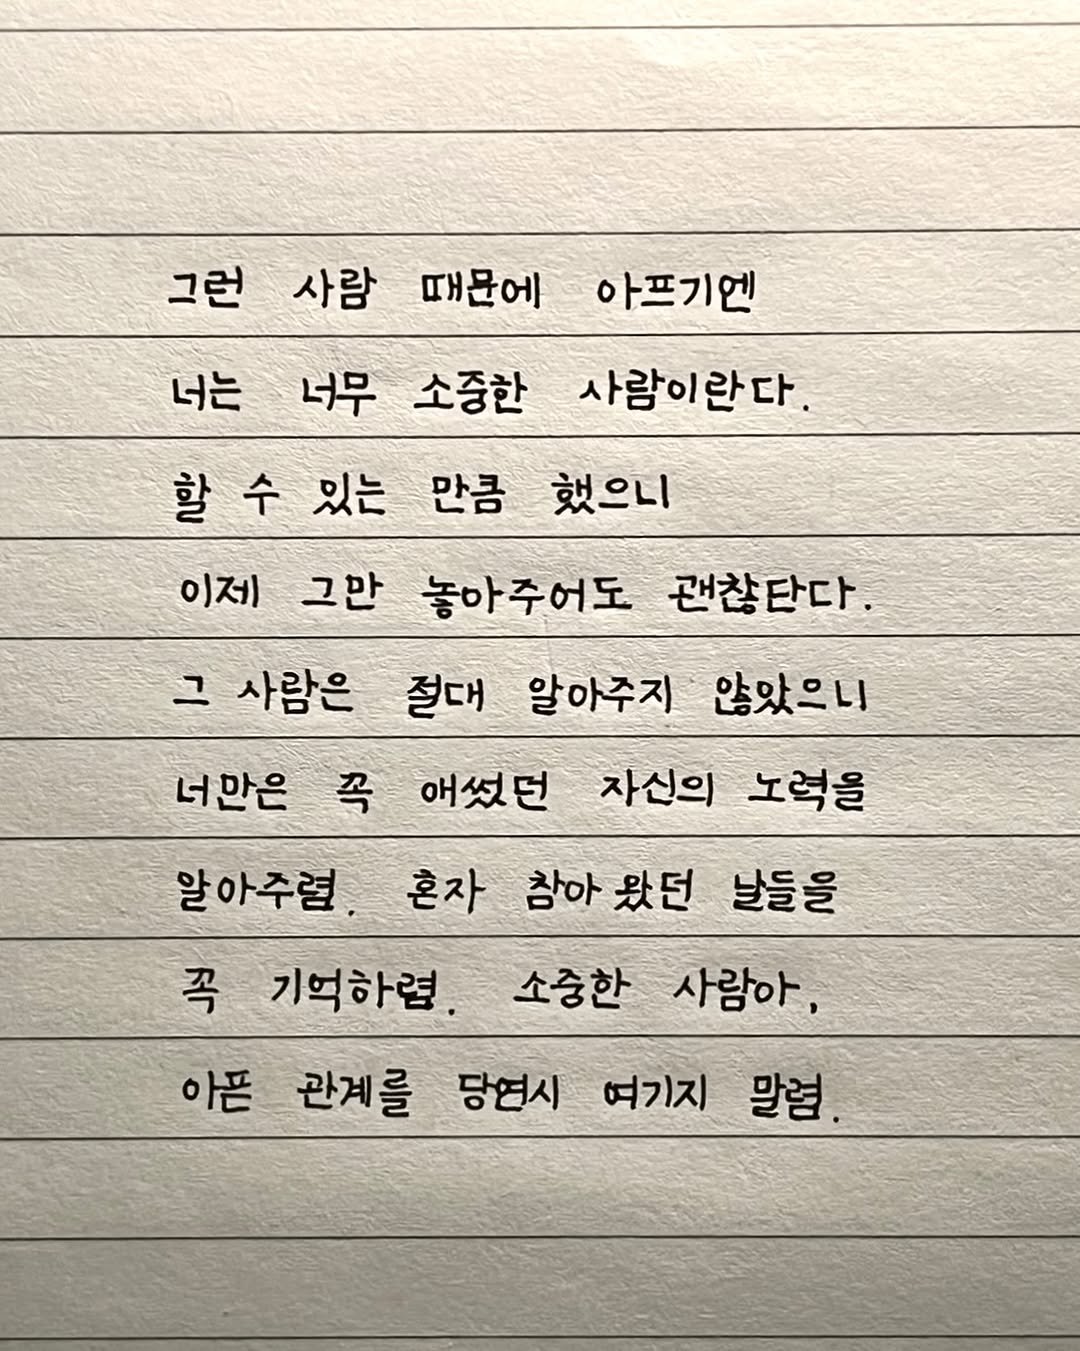 그런 사람 때문에 아프기엔
너는 너무 소중한 사람이란다.
할 수 있는 만큼 했으니
이제 그만 놓아주어도 괜찮단다.
그 사람은 절대 알아주지 않았으니
너만은 꼭 애썼던 자신의 노력을
알아주렴. 혼자 참아 왔던 날들을
꼭 기억하렴. 소중한 사람아,
아픈 관계를 당연시 여기지 말렴.